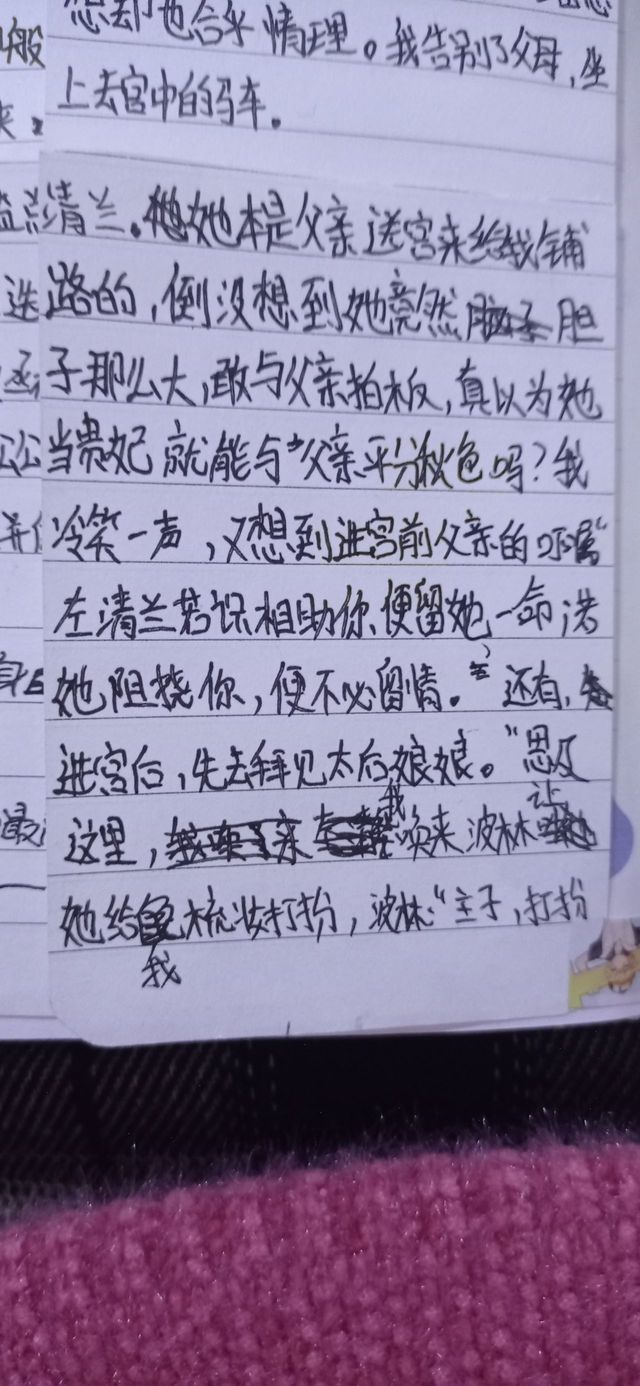 想却也合乎情理。我告别了父母，坐
上去宫中的马车。
清兰。她本是父亲送宫来给我铺
路的，倒没想到她竟然胆
子那么大，敢与父亲拍板，真以为她
当贵妃就能与父亲平分秋色吗？我
冷笑一声，又想到进宫前父亲的叮嘱“
左清兰若识相助你、便留她一命，若
她阻挠你，便不必留情。”还有，
进宫后，先去拜见太后娘娘。”思及
这里，我唤来波林让
她给我梳妆打扮，波林：“主子，打扮